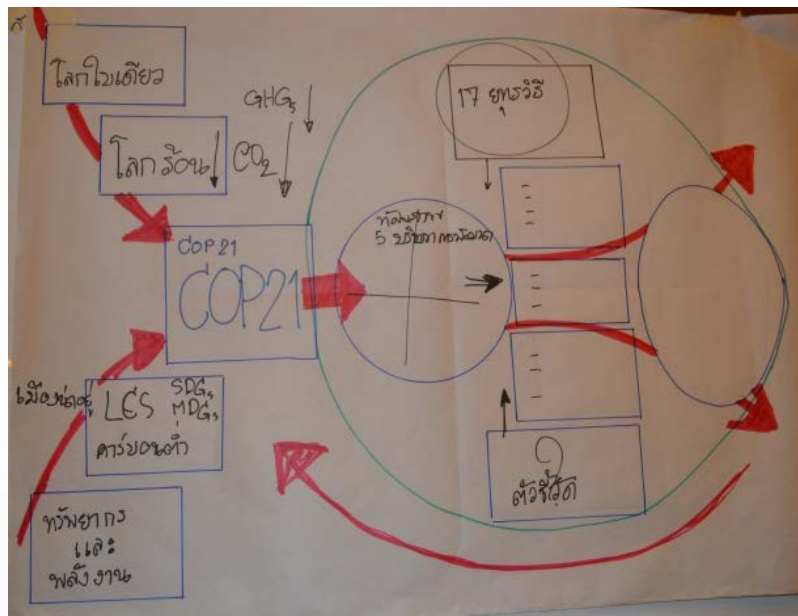 โลกใบเดียว
โลกร้อน
GHGs
CO2
COP21
COP21
เมืองน่าอยู่
LCS
SDGs
MDGs
คาร์บอนต่ำ
ทรัพยากร
และ
พลังงาน
17 ยุทธวิธี
5
ตัวชี้วัด